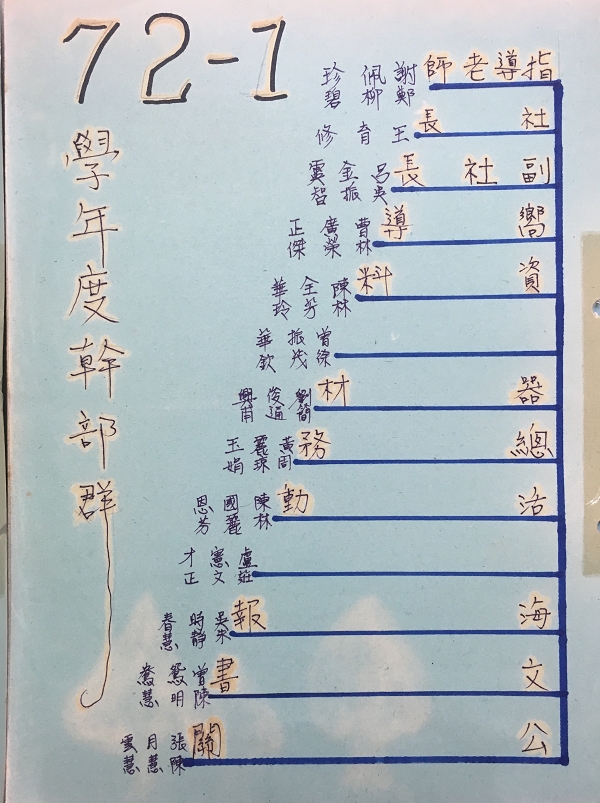 72-1
學年度幹部群
指導老師 謝佩珍
鄭柳碧
社長 王育修
副社長 呂金雲
吳振智
嚮導 曹廣正
林榮傑
資料 陳全華
林芳玲
曾振華
徐茂欽
器材 劉俊興
簡通甫
總務 黃麗玉
周娟
活動 陳國恩
林麗芳
盧憲才
莊文正
海報 吳時春
朱靜慧
文書 曾鴛鴦
陳明慧
公關 張月雲
陳慧慧